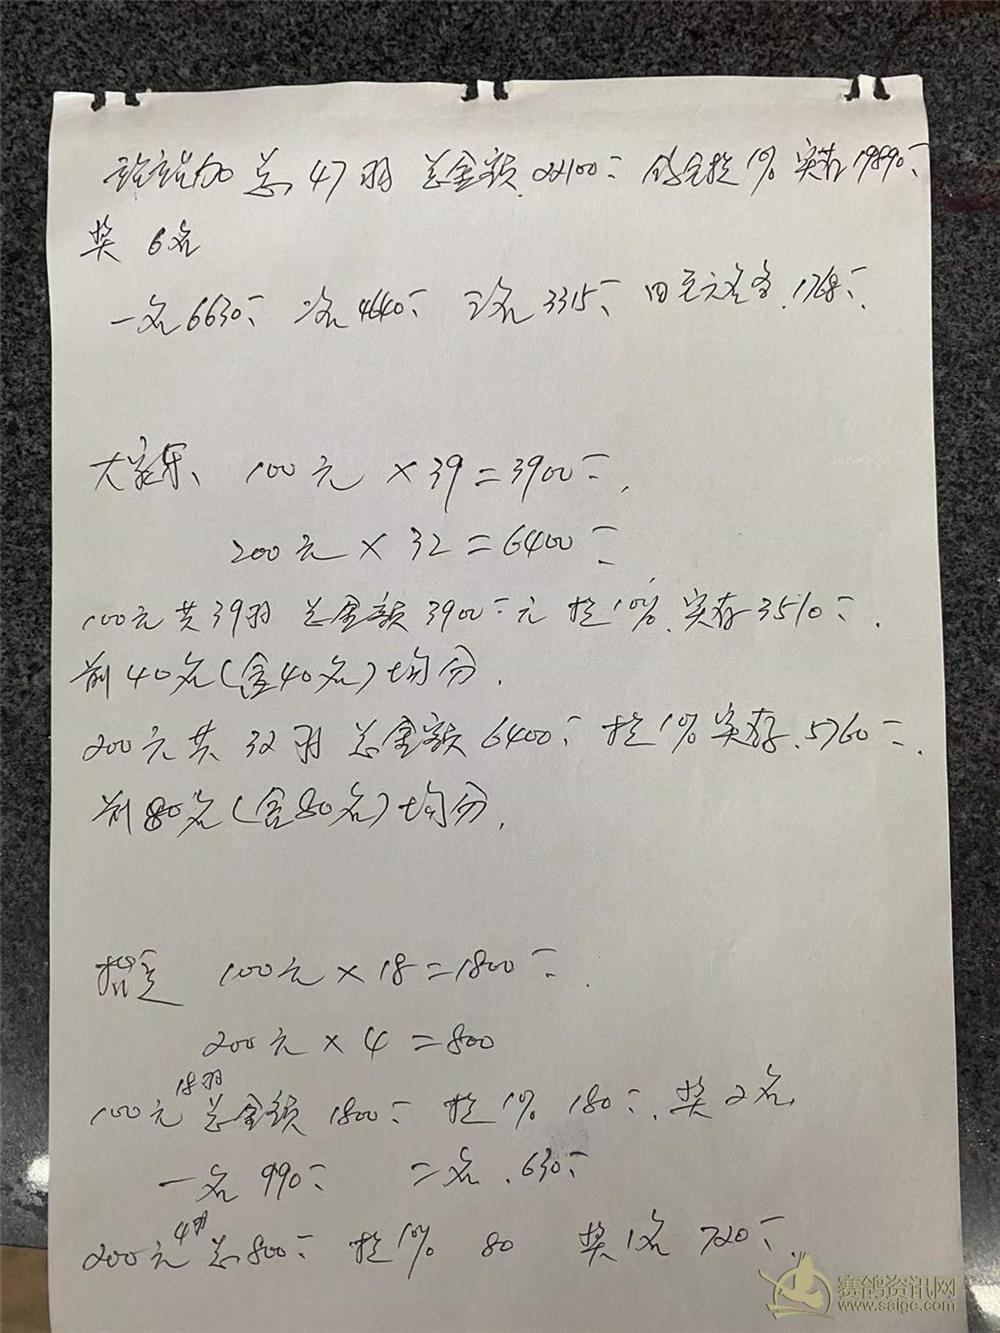 总 47羽 总金额.22100元 抽10% 实存19890元
奖 6名
一名6630元 二名4640元 三名3315元 四至六名各.1768元.
大家乐、 100元 × 39 = 3900元.
200元 × 32 = 6400元
100元共39羽 总金额3900元 抽10%.实存3510元.
前40名(含40名)均分.
200元共32羽 总金额6400元 抽10%实存.5760元.
前80名(含80名)均分.
指定 100元 × 18 = 1800元.
200元 × 4 = 800
100元 18羽 总金额 1800元 抽10% 180元.奖2名
一名 990元 二名.630元
200元 4羽 总800元 抽10% 80 奖1名 720元.
赛鸽资讯网
www.saige.com